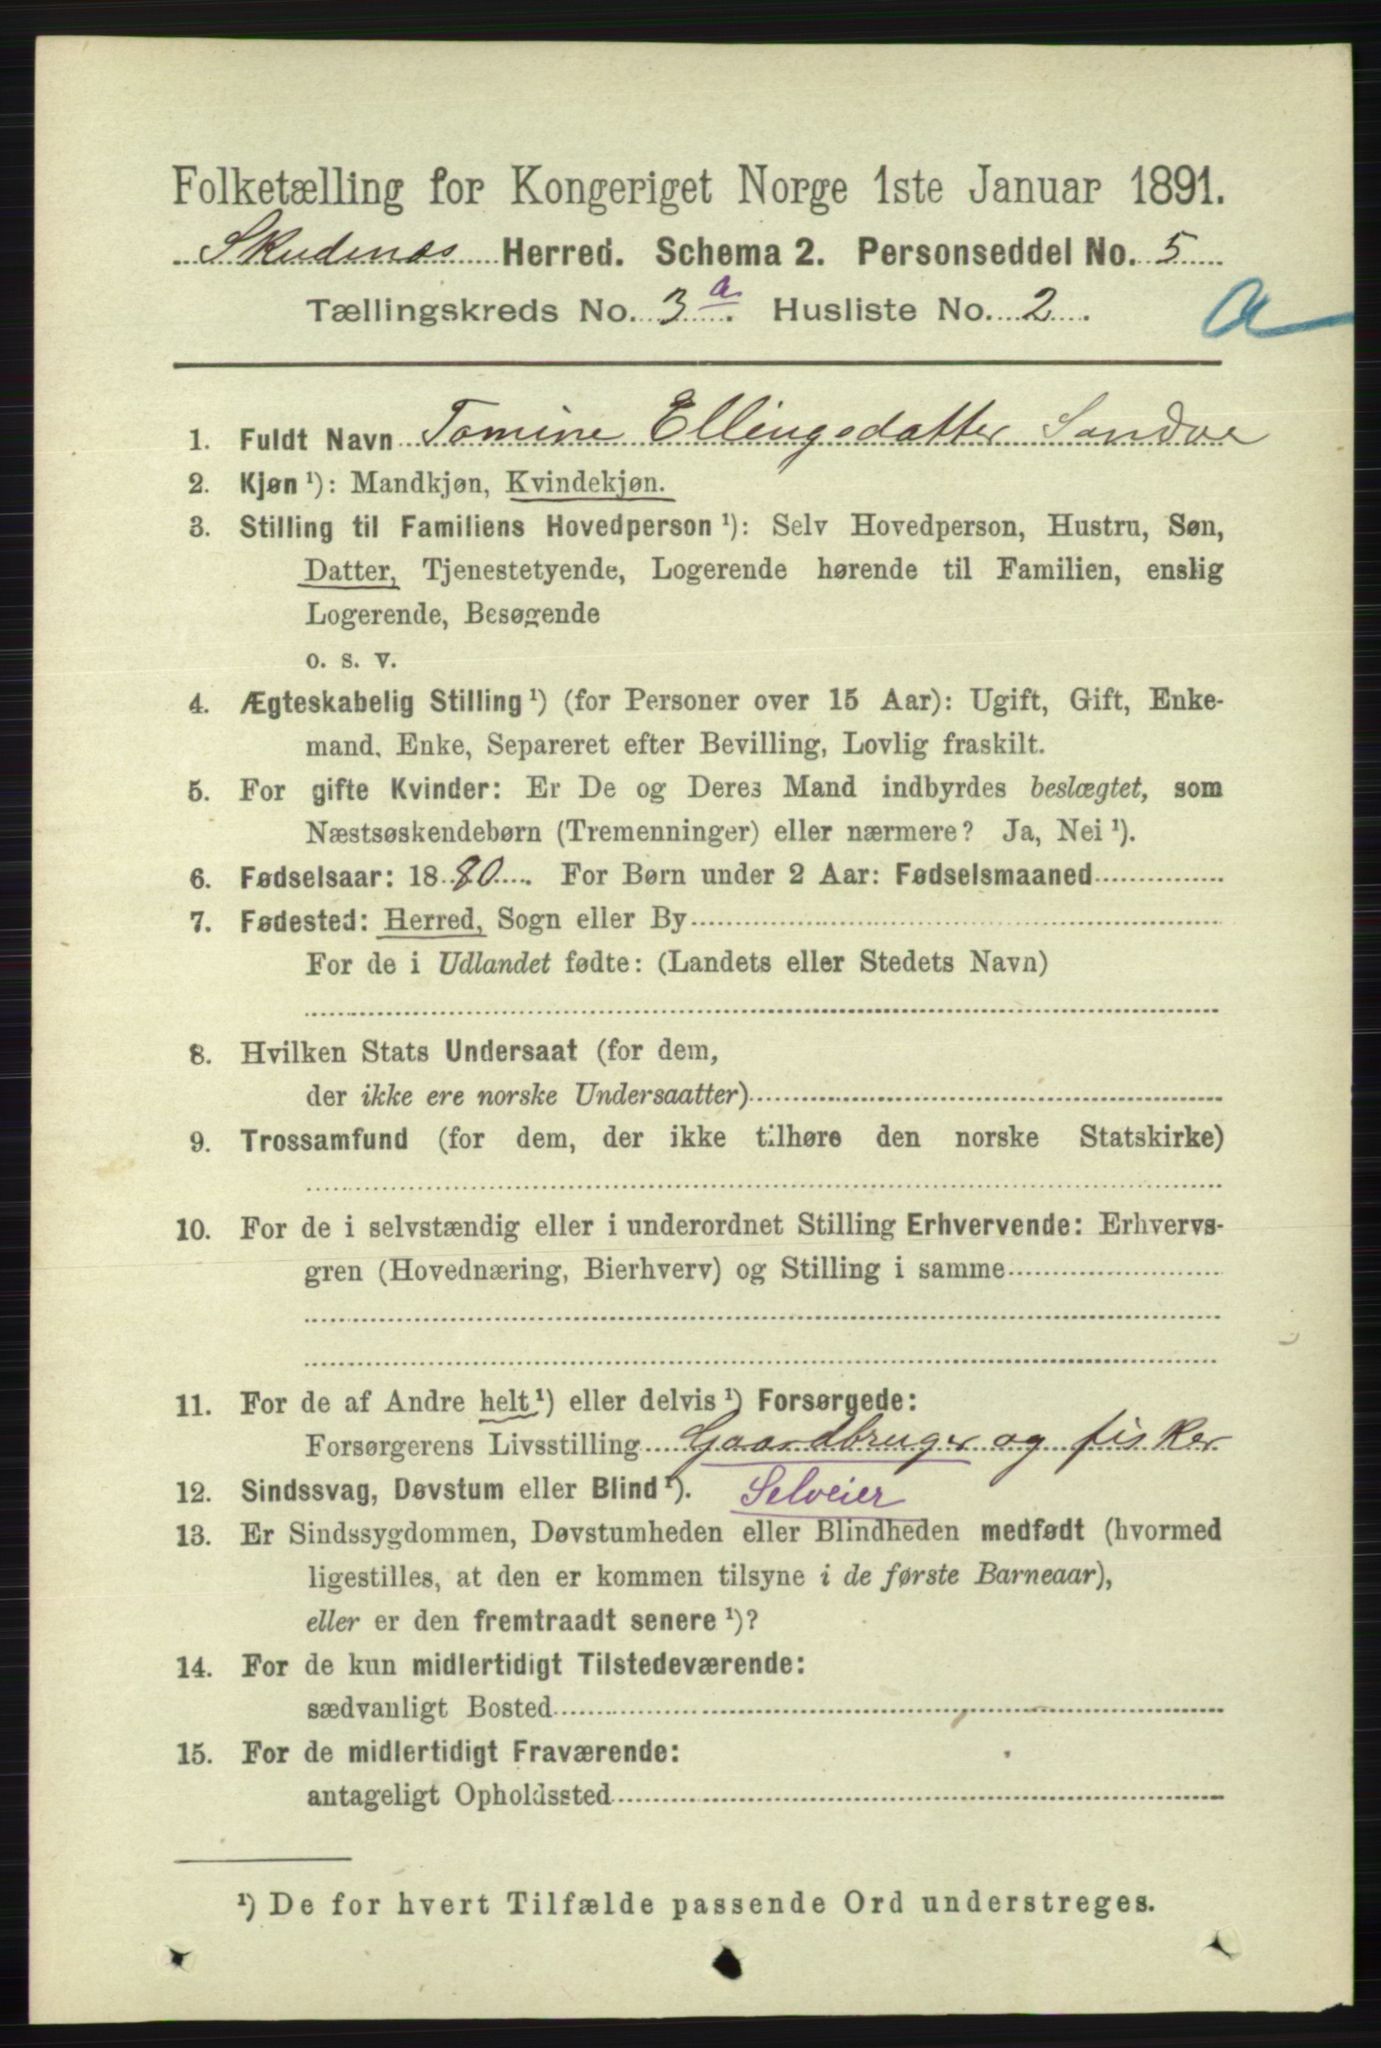 Folketælling for Kongeriget Norge 1ste Januar 1891.
Skudenæs Herred. Schema 2. Personseddel No. 5
Tællingskreds No. 3 a. Husliste No. 2.
a
1. Fuldt Navn Tomine Ellingsdatter Sandve
2. Kjøn ¹): Mandkjøn, Kvindekjøn.
3. Stilling til Familiens Hovedperson ¹): Selv Hovedperson, Hustru, Søn,
Datter, Tjenestetyende, Logerende hørende til Familien, enslig
Logerende, Besøgende
o. s. v.
4. Ægteskabelig Stilling ¹) (for Personer over 15 Aar): Ugift, Gift, Enke-
mand, Enke, Separeret efter Bevilling, Lovlig fraskilt.
5. For gifte Kvinder: Er De og Deres Mand indbyrdes beslægtet, som
Næstsøskendebørn (Tremenninger) eller nærmere? Ja, Nei ¹).
6. Fødselsaar: 1880. For Børn under 2 Aar: Fødselsmaaned
7. Fødested: Herred, Sogn eller By
For de i Udlandet fødte: (Landets eller Stedets Navn)
8. Hvilken Stats Undersaat (for dem,
der ikke ere norske Undersaatter)
9. Trossamfund (for dem, der ikke tilhøre den norske Statskirke)
10. For de i selvstændig eller i underordnet Stilling Erhvervende: Erhvervs-
gren (Hovednæring, Bierhverv) og Stilling i samme
11. For de af Andre helt ¹) eller delvis ¹) Forsørgede:
Forsørgerens Livsstilling Gaardbruger og fisker
12. Sindssvag, Døvstum eller Blind ¹). Selveier
13. Er Sindssygdommen, Døvstumheden eller Blindheden medfødt (hvormed
ligestilles, at den er kommen tilsyne i de første Barneaar),
eller er den fremtraadt senere ¹)?
14. For de kun midlertidigt Tilstedeværende:
sædvanligt Bosted
15. For de midlertidigt Fraværende:
antageligt Opholdssted
¹) De for hvert Tilfælde passende Ord understreges.